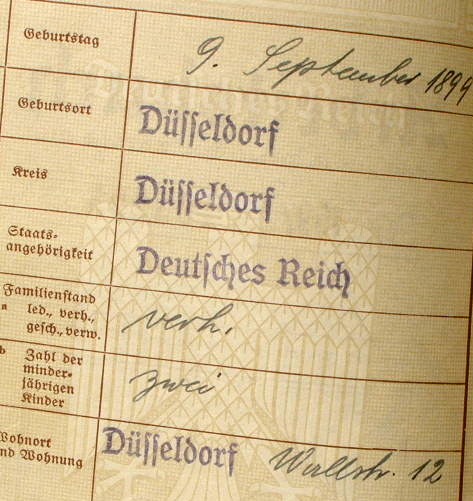 Geburtstag 9. September 1899
Geburtsort Düsseldorf
Kreis Düsseldorf
Staats-
angehörigkeit Deutsches Reich
Familienstand
a led., verh., verh.
gesch., verw.
b Zahl der
minder-
jährigen zwei
Kinder
Wohnort Düsseldorf Wallstr. 12
und Wohnung